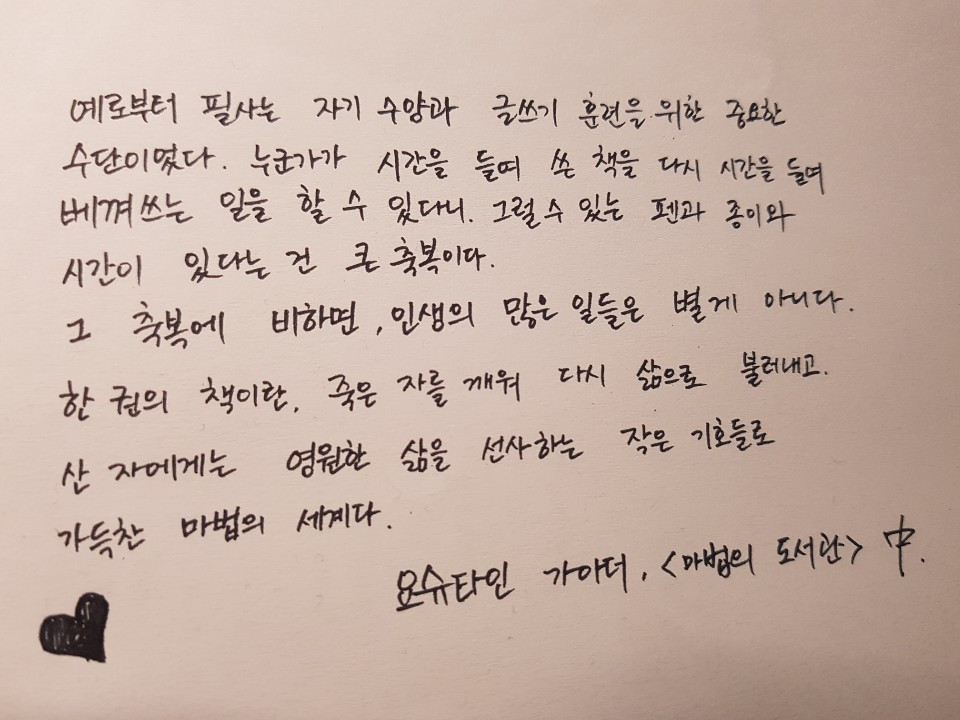 예로부터 필사는 자기 수양과 글쓰기 훈련을 위한 중요한
수단이었다. 누군가가 시간을 들여 쓴 책을 다시 시간을 들여
베껴쓰는 일을 할 수 있다니. 그럴 수 있는 펜과 종이와
시간이 있다는 건 큰 축복이다.
그 축복에 비하면, 인생의 많은 일들은 별게 아니다.
한 권의 책이란, 죽은 자를 깨워 다시 삶으로 불러내고.
산 자에게는 영원한 삶을 선사하는 작은 기호들로
가득찬 마법의 세계다.
요슈타인 가아더, <마법의 도서관> 中.